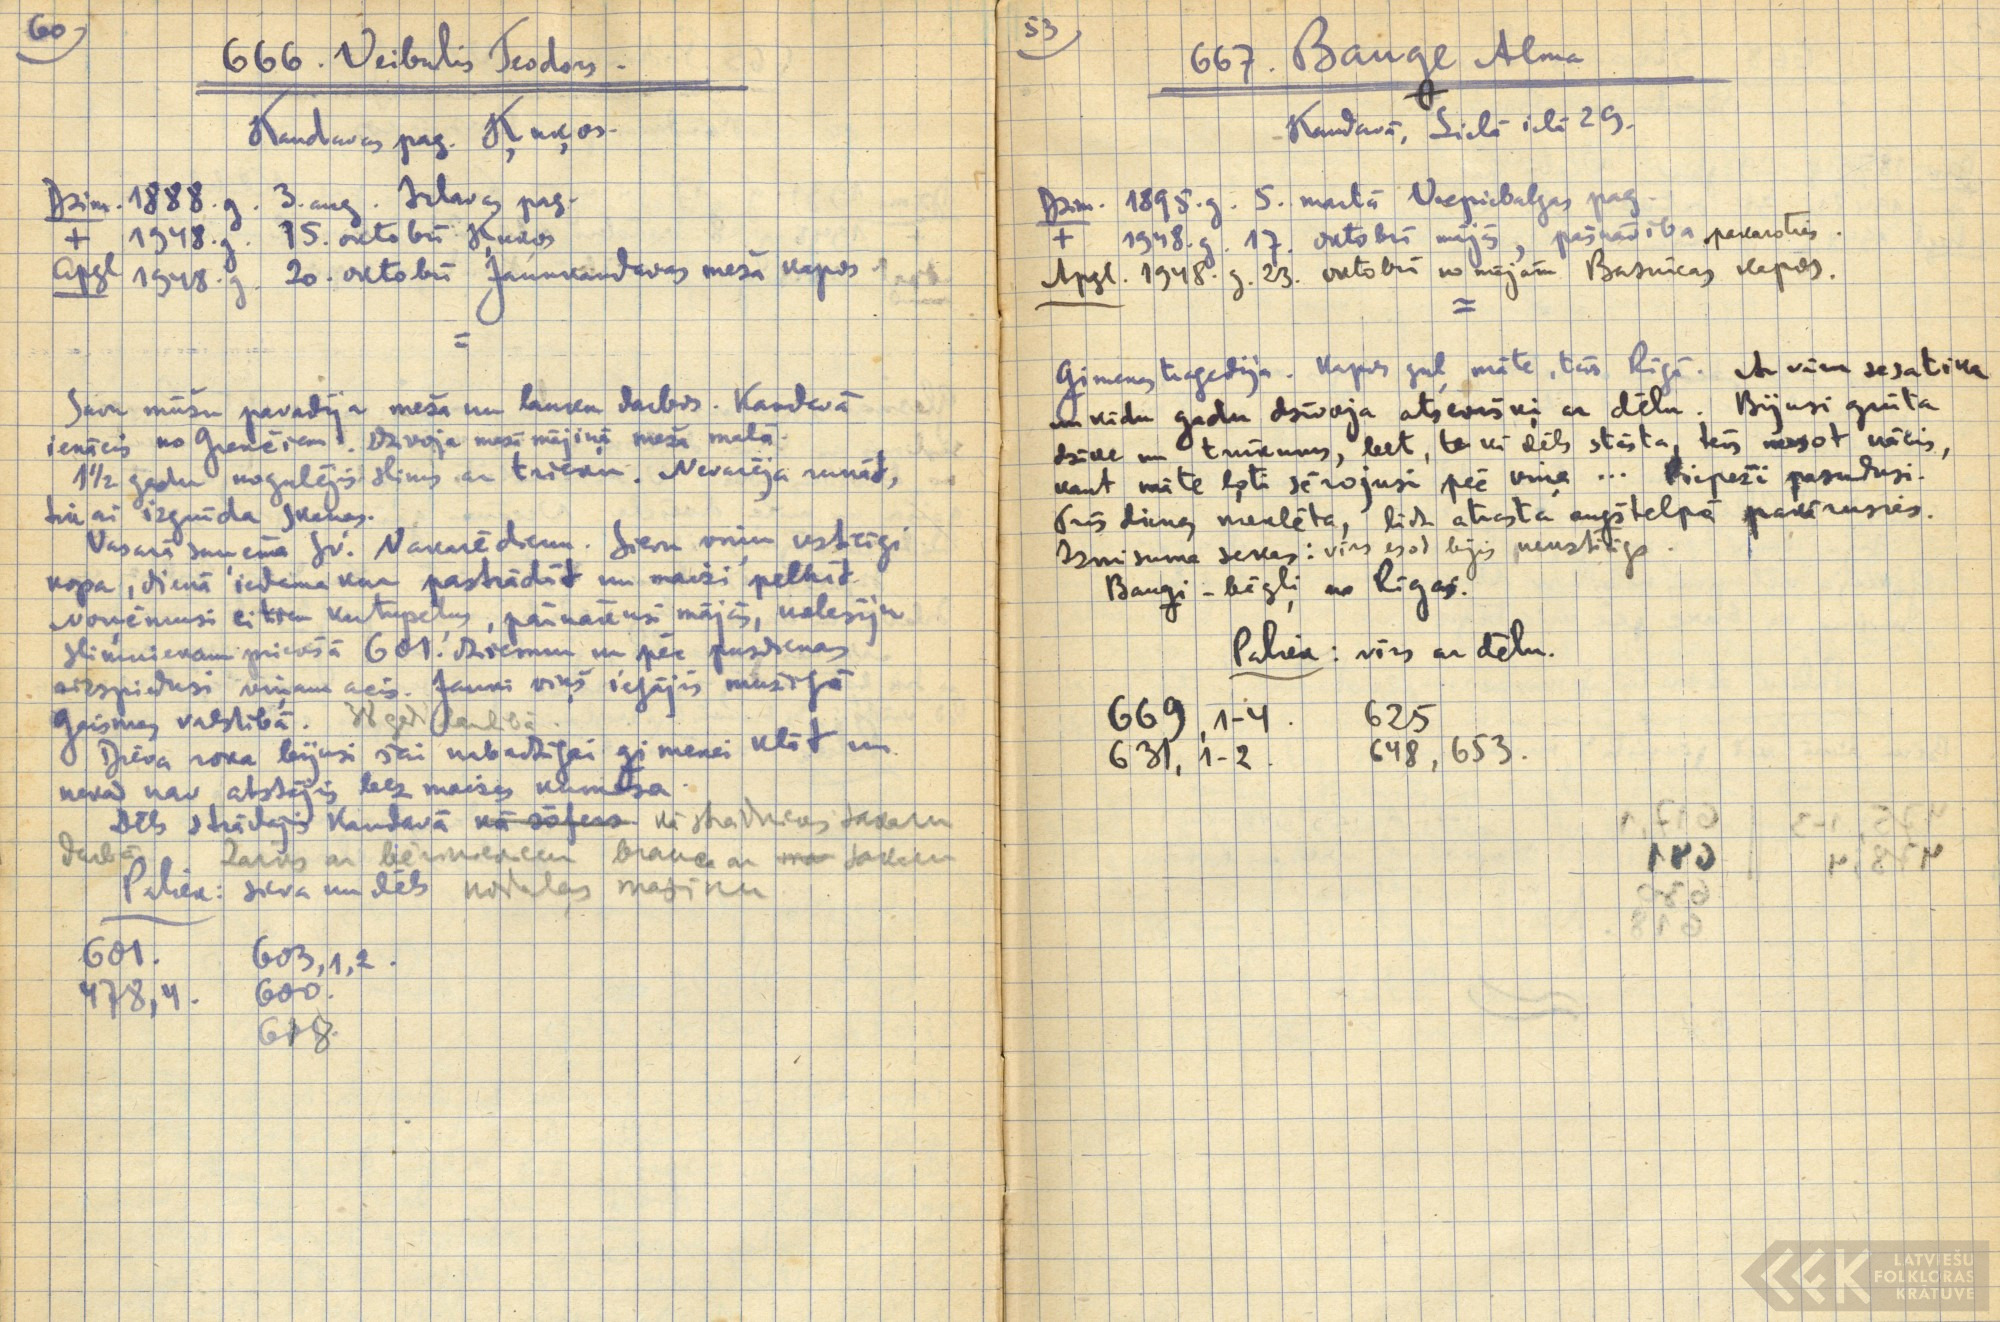 60
666. Veibulis Teodors.
Kandavas pag. Ķuķos.
Dzim. 1888.g. 3. aug. Irlavas pag.
+ 1948.g. 15. oktobrī Ķuķos
Apgl 1948.g. 20. oktobrī Jaunkandavas meža kapos.
=
Savu mūžu pavadīja meža un lauku darbos. Kandavā
ienācis no Grenčiem. Dzīvoja mežmājiņā meža malā.
1 1/2 gadu nogulējis slims ar trieku. Nevarēja runāt,
tikai izgrūda skaņas.
Vasarā saņēma Sv. Vakarēdienu. Sievu viņu uzticīgi
kopa, dienā iedama kur pastrādāt un maizi pelnīt.
noņēmusi kartupeļus, pārnākusi mājās, nolasīja
slimniekam priekšā 601. dziesmu un pēc pusdienas
aizspiedusi viņam acis. Jauki viņš iegājis mūžīgā
Gaismas valstībā. 38 gadi laulībā.
Dieva roka bijusi šai nabadzīgai ģimenei klāt un
nekad nav atstājis bez maizes kumosa.
Dēls strādājis Kandavā kā šoferis kā strādnieks
darbā. Zārks ar bēriniekiem brauca ar
Paliek: sieva un dēls nodaļas mašīnu
601. 603,1,2.
478,4. 600.
618.
53
667. Bauge Alma
Kandavā, Lielā ielā 29.
Dzim. 1895.g. 5. martā Vecpiebalgas pag.
+ 1948.g. 17. oktobrī mājās, pašnāvība pakaroties.
Apgl. 1948.g. 23. oktobrī no mājām Baznīcas kapos.
=
Ģimenes traģēdija. Kapos guļ māte, tēvs Rīgā. Ar vīru sesatika
un kādu gadu dzīvoja atsevišķi ar dēlu. Bijusi grūta
dzīve un trūkums, bet, to kā dēls stāsta, tēvs nācis,
kaut māte ļoti sērojusi pēc viņa ... Piepeži pazudusi.
Trīs dienas meklēta, līdz atrasta augštelpā pakārusies.
Izmisuma sekas: vīrs esot bijis neuzticīgs.
Baugi - bēgļi no Rīgas.
Paliek: vīrs ar dēlu.
669, 1-4. 625
631, 1-2. 648, 653.
LATVIEŠU
FOLKLORAS
KRĀTUVE